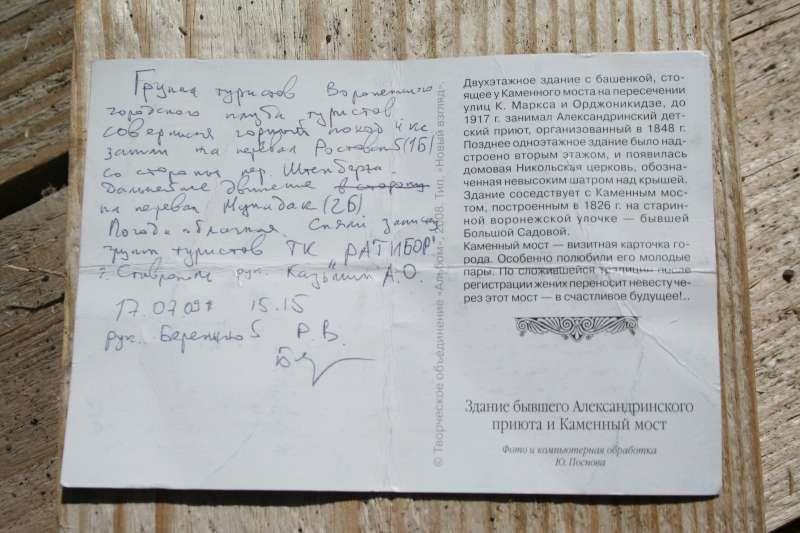 Группа туристов Воронежского
городского клуба туристов
совершая горный поход 4 кс.
зашли на перевал Ростовцев (1Б)
со стороны пер. Штернберга.
Дальнейшее движение в сторону
на перевал (2Б)
Погода облачная. Сняли записку
групп туристов ТК "РАТИБОР"
г. Ставрополь рук. А.О.
17.07.09г 15.15
рук. Р.В.
Двухэтажное здание с башенкой, сто-
ящее у Каменного моста на пересечении
улиц К. Маркса и Орджоникидзе, до
1917 г. занимал Александринский дет-
ский приют, организованный в 1848 г.
Позднее одноэтажное здание было над-
строено вторым этажом, и появилась
домовая Никольская церковь, обозна-
ченная невысоким шатром над крышей.
Здание соседствует с Каменным мос-
том, построенным в 1826 г. на старин-
ной воронежской улочке — бывшей
Большой Садовой.
Каменный мост — визитная карточка го-
рода. Особенно полюбили его молодые
пары. По сложившейся традиции после
регистрации жених переносит невесту че-
рез этот мост — в счастливое будущее!..
Здание бывшего Александринского
приюта и Каменный мост
Фото и компьютерная обработка
Ю. Поснова
© Творческое объединение «Альбом», 2008. Тип. «Новый взгляд».